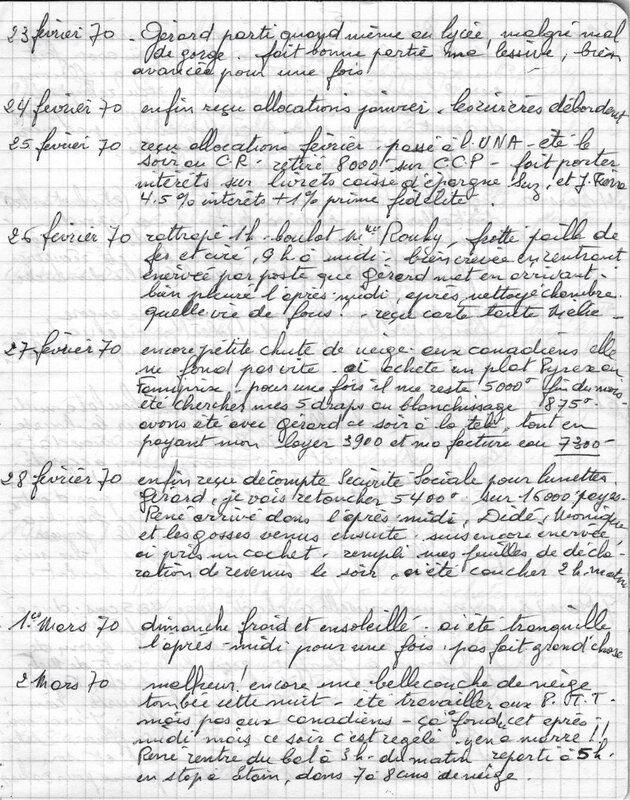 23 février 70 - Gérard parti quand même au lycée, malgré mal
de gorge. fait bonne partie ma lessive, bien
avancée pour une fois
24 février 70 enfin reçu allocations janvier. les rivières débordent
25 février 70 reçu allocations février. passé à l'UNA - été le
soir au C.R. retiré 8000 sur CCP - fait porter
intérêts sur livrets caisse d'épargne Suz, et J. Pierre
4.5% intérêts + 1% prime fidélité.
26 février 70 rattrapé 1h. boulot Rouhy, frotté paille de
fer et ciré, 9h à midi - bien crevée en rentrant
énervée par poste que Gérard met en arrivant -
bien pleuré l'après-midi, après, nettoyé chambre.
quelle vie de fous. - reçu carte tante
27 février 70 encore petite chute de neige. aux canadiens elle
ne fond pas vite - ai acheté un plat Pyrex au
Famiprix. pour une fois il me reste 5000° fin du mois -
été chercher mes 5 draps au blanchissage 1875°.
avons été avec Gérard ce soir à la télé, tout en
payant mon loyer 3900 et ma facture eau 7300-
28 février 70 enfin reçu décompte Sécurité Sociale pour lunettes
Gérard, je vais retoucher 5400° sur 16000 payés.
René arrivé dans l'après-midi, Dédé,
et les gosses venus ensuite. suis encore énervée,
ai pris un cachet. rempli mes feuilles de décla-
ration de revenus le soir, ai été coucher 2h. matin
1er Mars 70 dimanche froid et ensoleillé - ai été tranquille
l'après-midi pour une fois. pas fait grand'chose
2 Mars 70 malheur! encore une belle couche de neige
tombée cette nuit - été travailler aux P.T.T.
mais pas aux canadiens - ça a fondu cet après
midi mais ce soir c'est regelé - y en a marre!!
René rentré du bal à 3h. du matin reparti à 5h.
en stop à Stain, dans 7 à 8 cms de neige.